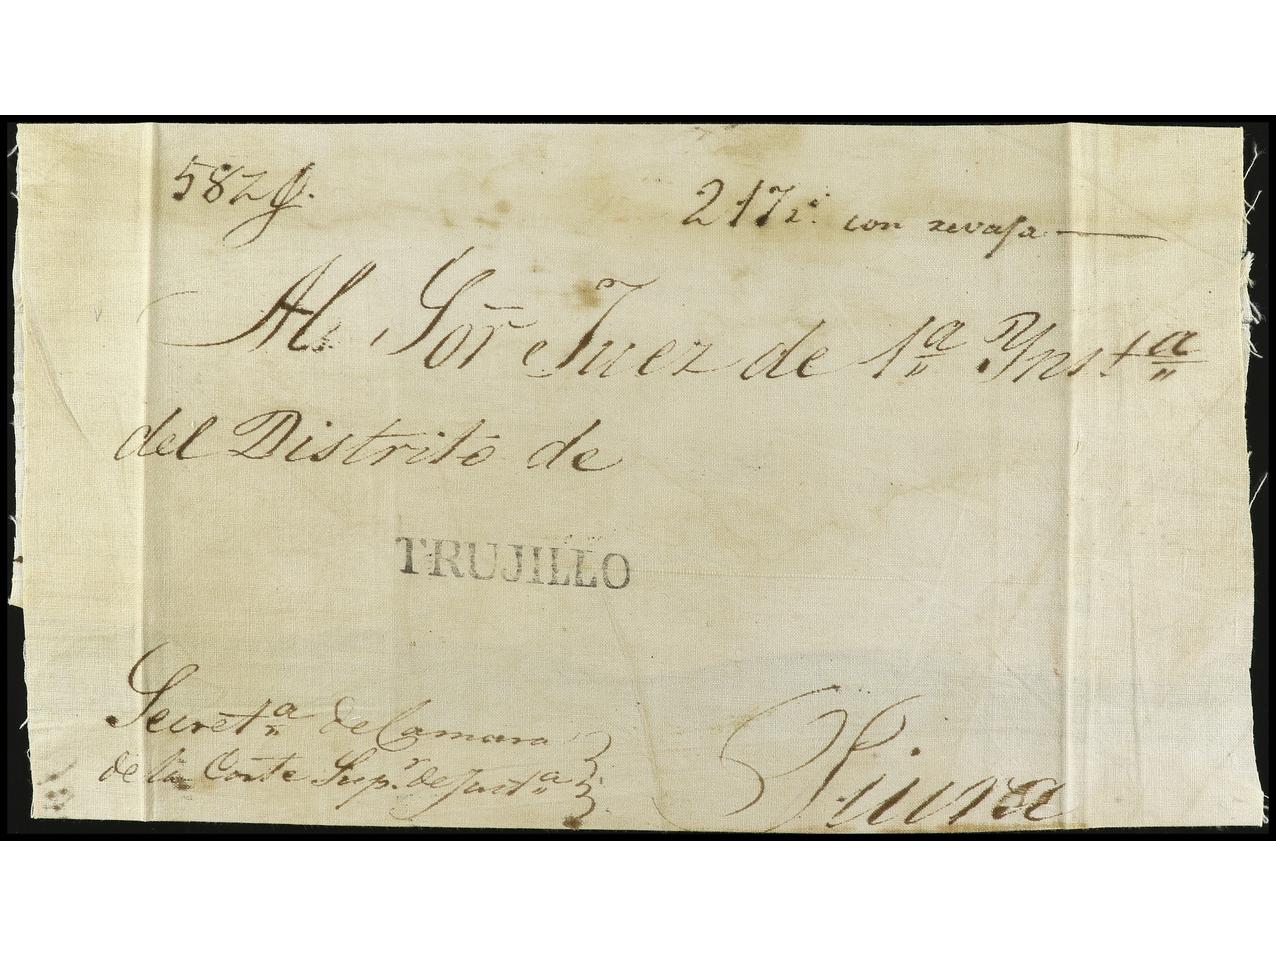 582
217 rs. con revaja
Al Sor. Juez de 1a. Ynsta.
del Distrito de
TRUJILLO
Secreta. de Camara
de la Corte Supr. de Justa.
Piura